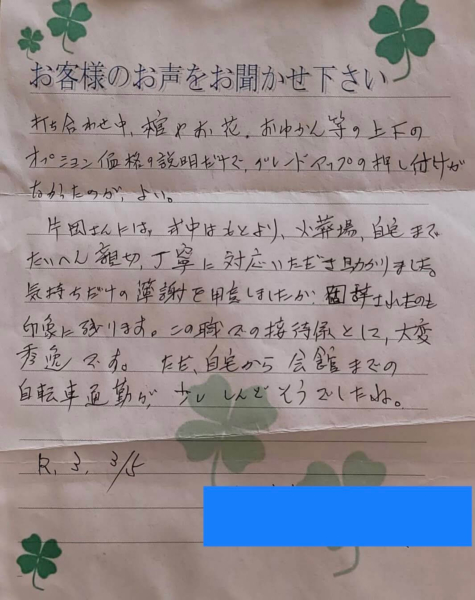 お客様のお声をお聞かせ下さい
打ち合わせ中、棺やお花、おゆかん等の上下の
オプション価格の説明だけで、グレードアップの押し付けが
なかったのが、よい。
片岡さんには、式中はもとより、火葬場、自宅まで
たいへん親切、丁寧に対応いただき助かりました。
気持ちだけの薄謝を用意しましたが、固辞されたのも
印象に残ります。この職での接待係として、大変
秀逸です。ただ、自宅から会館までの
自転車通勤が、少ししんどそうでしたね。
R, 3, 3/5